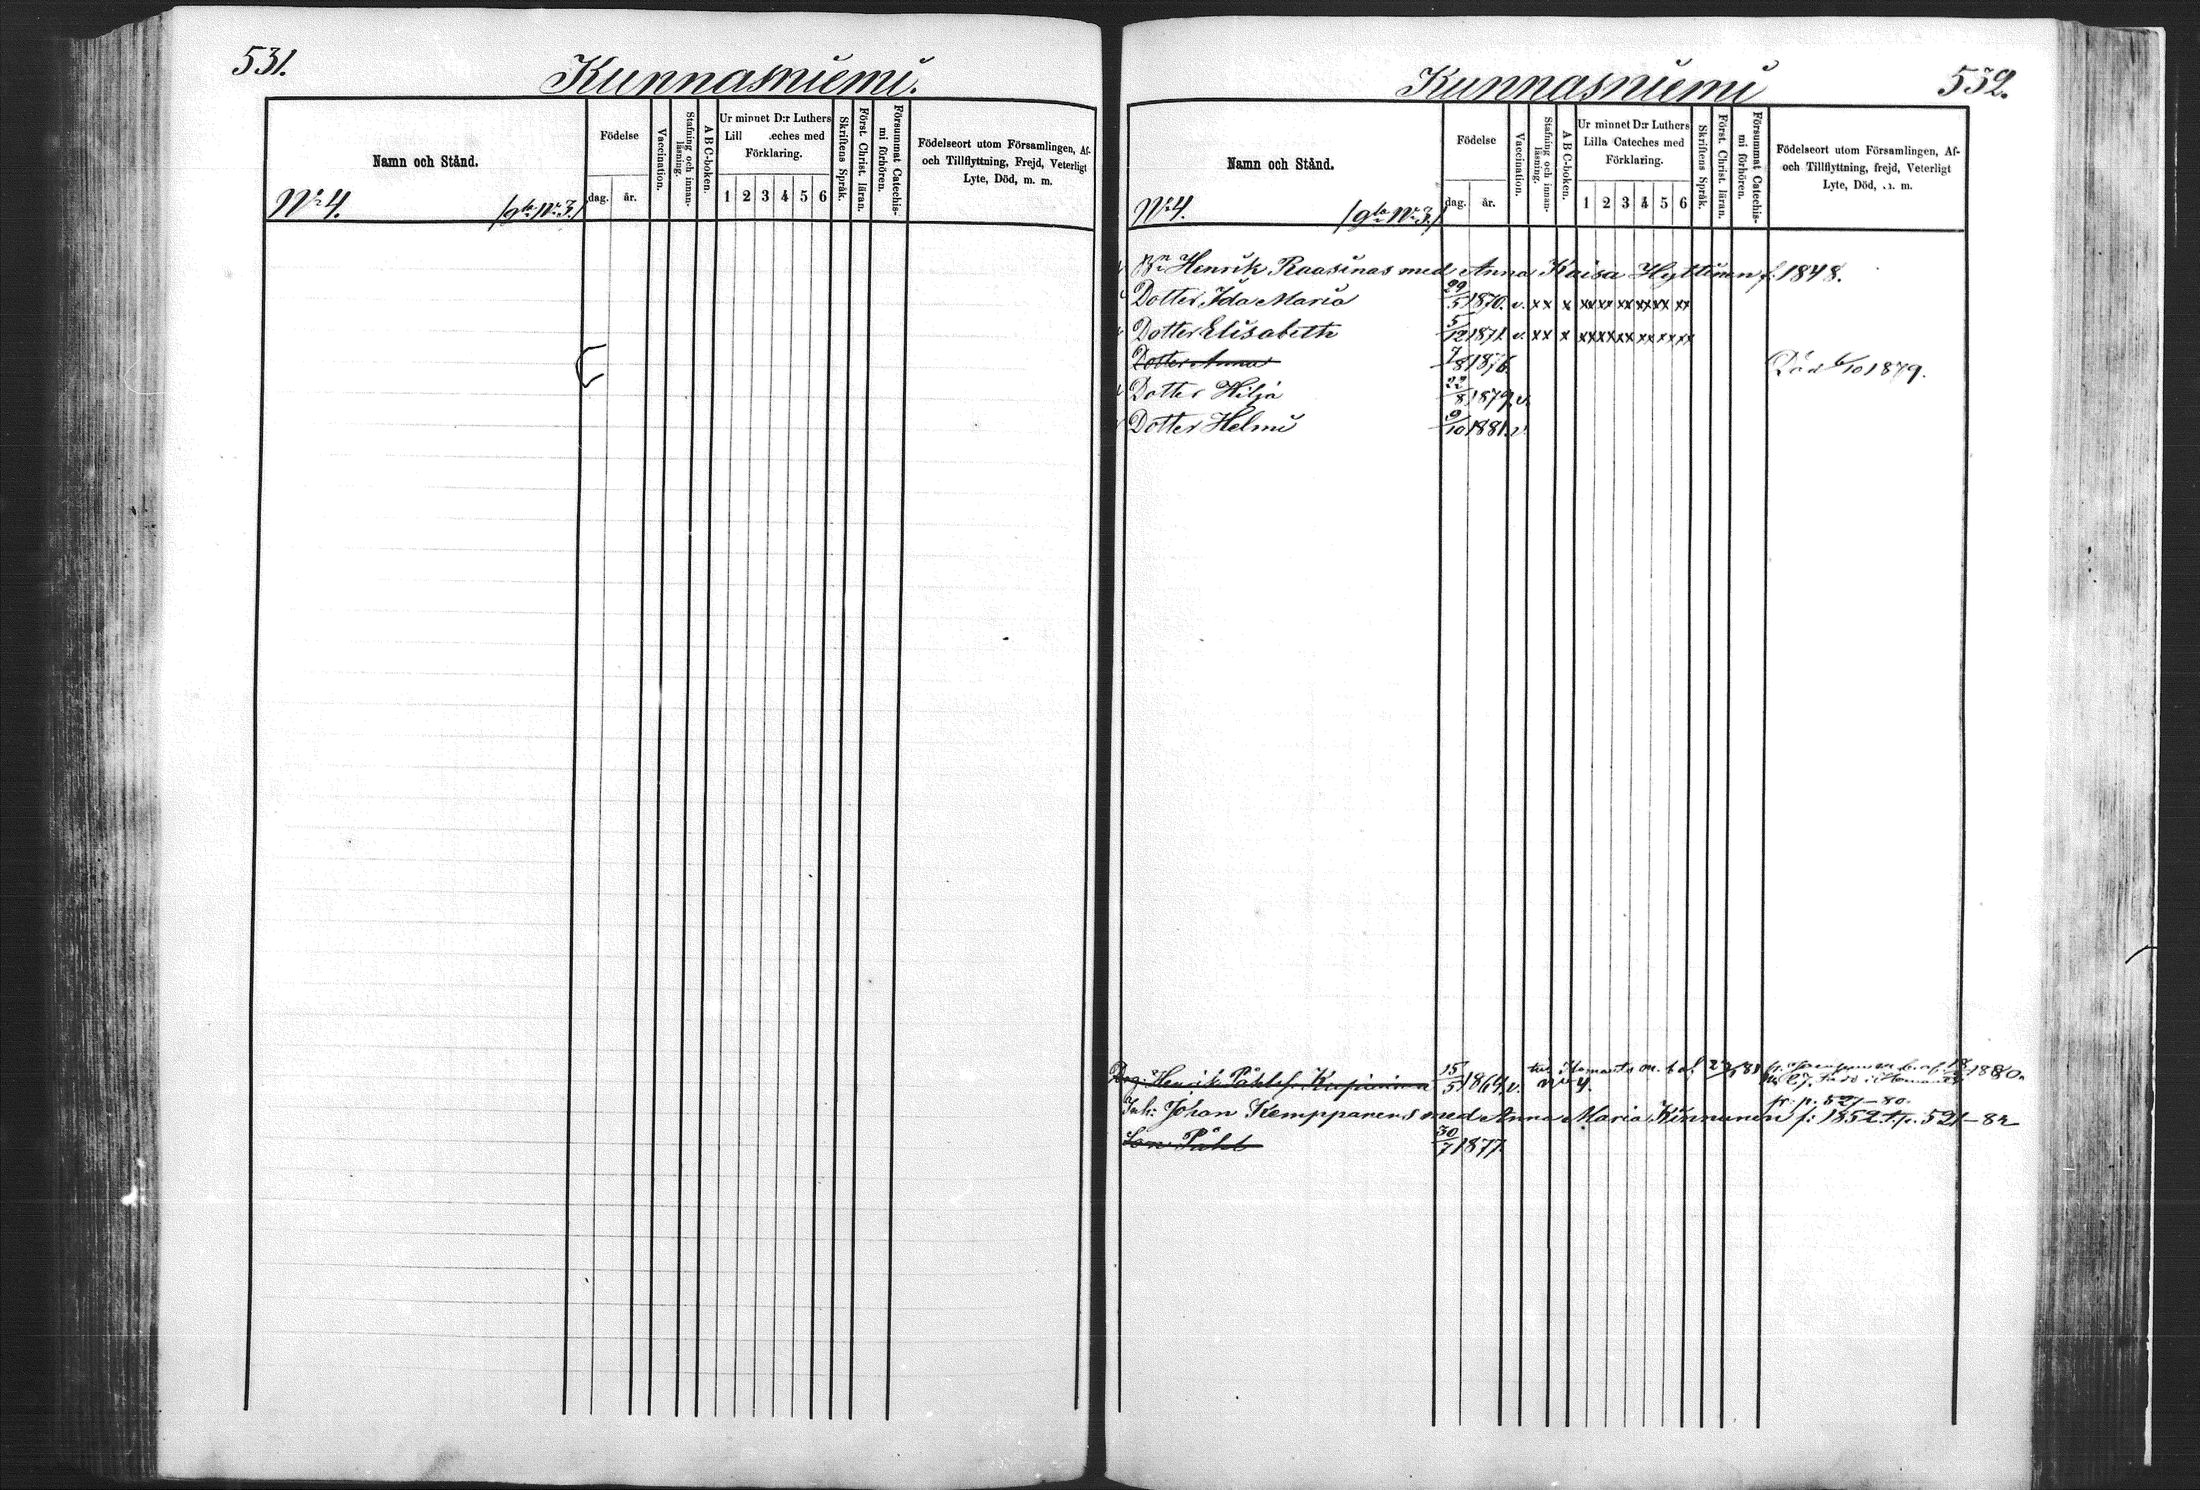 531.
Kunnasniemi.
Namn och Stånd.
Födelse
dag.
år.
Vaccination.
Stafning och innanläsning.
A B C-boken.
Ur minnet D:r Luthers
Lill eches med
Förklaring.
1 2 3 4 5 6
Skriftens Språk.
Först. Christ. läran.
Försummat Catechismi förhören.
Födelseort utom Församlingen, Af-
och Tillflyttning, Frejd, Veterligt
Lyte, Död, m. m.
N:o 4.
Kunnasniemi
532.
Namn och Stånd.
Födelse
dag.
år.
Vaccination.
Stafning och innanläsning.
A B C-boken.
Ur minnet D:r Luthers
Lilla Cateches med
Förklaring.
1 2 3 4 5 6
Skriftens Språk.
Först. Christ. läran.
Försummat Catechismi förhören.
Födelseort utom Församlingen, Af-
och Tillflyttning, frejd, Veterligt
Lyte, Död, m. m.
N:o 4.
Bn Henrik Raasinas med Anna Kaisa Hyttinen f. 1848.
Dotter, Ida Maria 29/5 1870. v. xx x xx xx xx xx xx xx
Dotter Elisabeth 5/12 1871 v. xx x xx xx xx xx xx xx
Dotter Anna 7/8 1876 Död 6/10 1879.
Dotter Hilja 22/8 1879 v.
Dotter Helmi 9/10 1881. v.
Henrik Påhlsf. 15/5 1864 v. till Ilomants 1880
fr. p. 521–80.
Inh: Johan Kemppanens med Anna Maria Kinnunen f: 1852 t. p. 521–82
Son Påhl 30/7 1877.